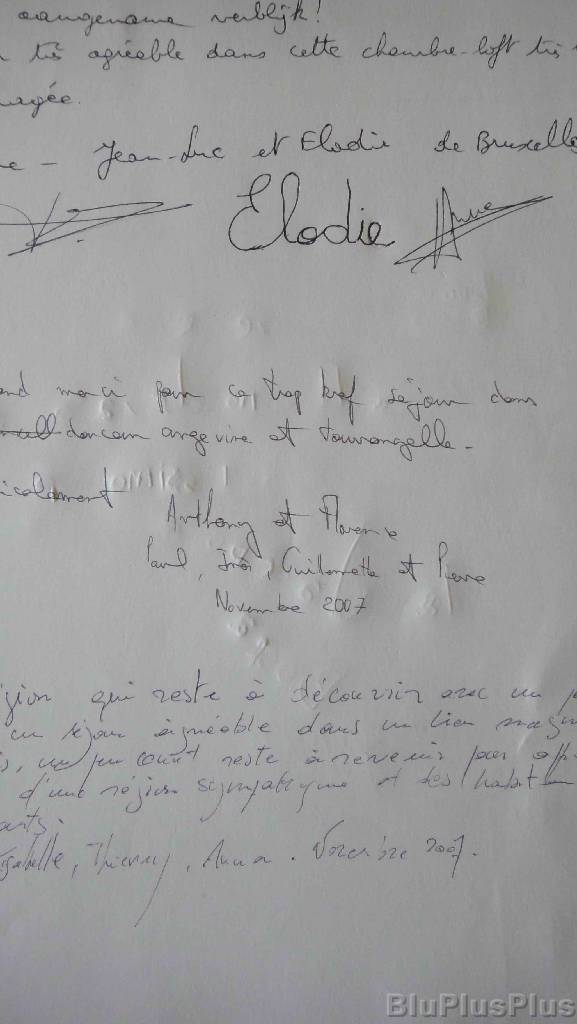 aangename verblijk!
très agréable dans cette chambre-loft très
nagée.
ne - Jean-Luc et Elodie de Bruxelle
Elodie Anne
and merci pour ce trop bref séjour dans
douceur angevine et tourangelle.
icalement
Anthony et Florence
Paul, Inès, Guillemette et Pierre
Novembre 2007
gion qui reste à découvrir avec un
un séjour agréable dans un lieu
un peu court reste à revenir pour
d'une région sympatique et des habit
ants.
Isabelle, Thierry, Anna. Novembre 2007.
BluPlusPlus